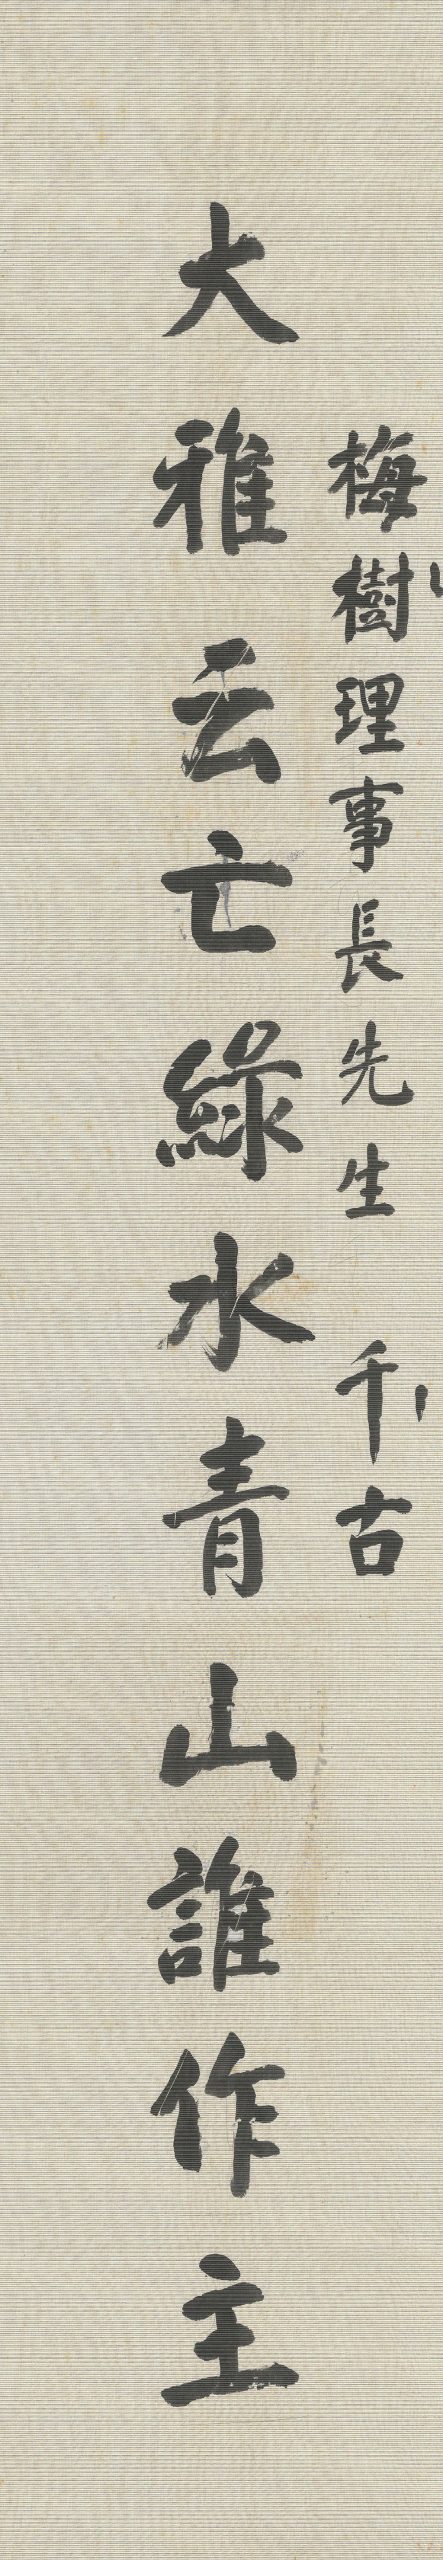 梅樹理事長先生 千古
大雅云亡綠水青山誰作主